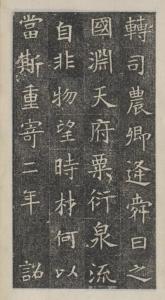 轉司農卿逢舜日之
國淵天府粟衍泉流
自非物望時材何以
當斯重寄二年　詔